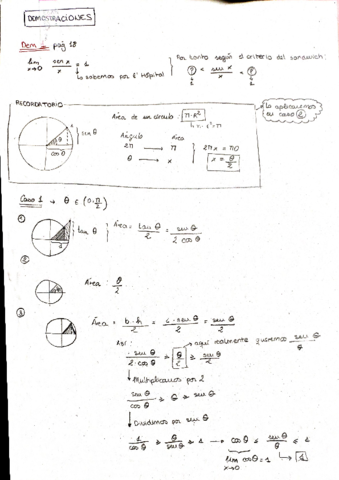 DEMOSTRACIONES
Dem 1 pág 18
lim x→0 sen x / x = 1
↳ Lo sabemos por L'Hôpital
Por tanto según el criterio del sandwich:
? < sen x / x < ?
RECORDATORIO
Área de un círculo: π·R²
sen θ
cos θ
Ángulo Área
2π → π
θ → x
2πx = πθ
x = θ/2
Lo aplicaremos en caso 2
Caso 1 → θ ∈ (0, π/2)
1
tan θ
Área = tan θ / 2 = sen θ / 2 cos θ
2
Área: θ/2
3
Área = b·h / 2 = 1·sen θ / 2 = sen θ / 2
Así: → aquí realmente queremos sen θ / θ
sen θ / 2·cos θ ≥ θ/2 ≥ sen θ / 2
↓ Multiplicamos por 2
sen θ / cos θ ≥ θ ≥ sen θ
↓ Dividimos por sen θ
1 / cos θ ≥ θ / sen θ ≥ 1 → cos θ ≤ sen θ / θ ≤ 1
lim x→0 cos θ = 1 ↳ 1